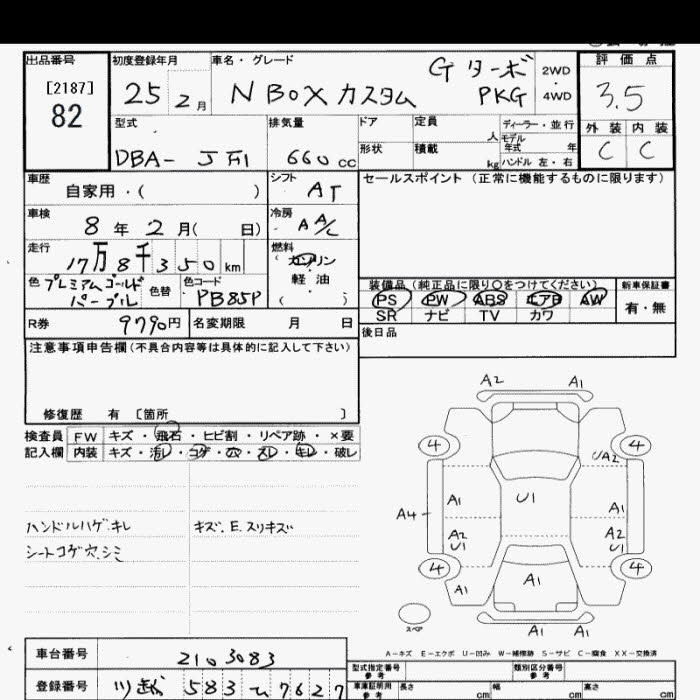 出品番号
[2187]
82
初度登録年月
25 2月
車名・グレード
N BOX カスタム
G ターボ
PKG
2WD
・
4WD
評価点
3.5
外装 内装
C C
型式
DBA- JF1
排気量
660cc
ドア 定員 人
形状 積載 kg
ディーラー・並行
モデル
年式 年
ハンドル 左・右
車歴
自家用・( )
シフト
AT
セールスポイント (正常に機能するものに限ります)
車検
8年2月( 日)
冷房
AA/C
走行
17万8千350km
燃料
ガソリン
軽油
( )
色
プレミアムゴールド
パープル
色替
色コード
PB85P
装備品(純正品に限り○をつけてください)
PS PW ABS エアB AW
SR ナビ TV カワ
新車保証書
有・無
R券 9790円
名変期限 月 日
後日品
注意事項申告欄(不具合内容等は具体的に記入して下さい)
修復歴 有 〔箇所 〕
検査員
記入欄
FW キズ・飛石・ヒビ割・リペア跡・×要
内装 キズ・汚レ・コゲ・穴・スレ・キレ・破レ
ハンドルハゲ.キレ
シートコゲ穴.シミ
キズ.E.スリキズ
A2 A1
4 4
UA2
A1 U1 A1
A4
A2 A2
U1 U1
4 4
A1 A1
スペア
A1 A1
A-キズ E-エクボ U-凹み W-補修跡 S-サビ C-腐食 XX-交換済
車台番号 2103083
型式指定番号
参考
類別区分番号
参考
登録番号 583 ひ 7627
車庫証明用
参考
長さ cm 幅 cm 高さ cm